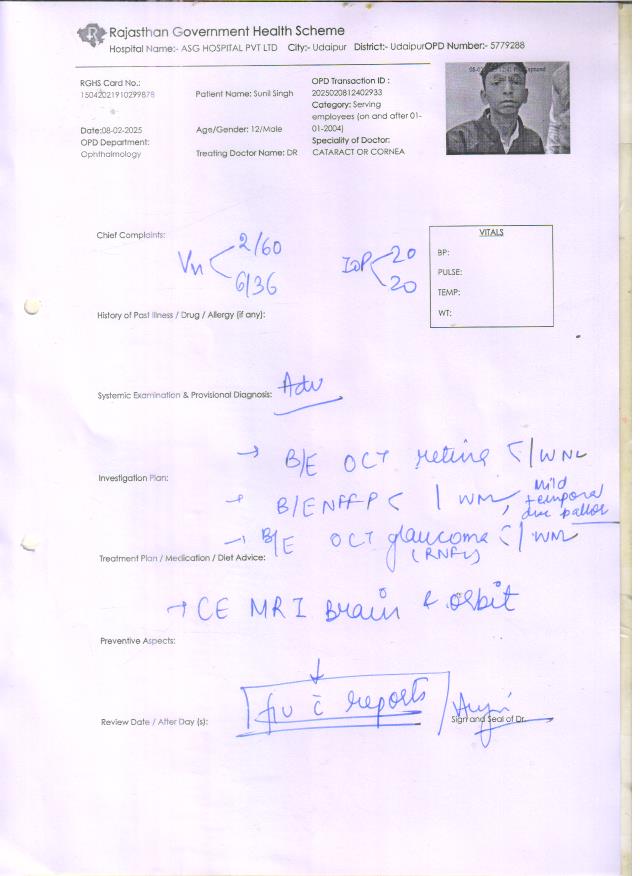 Rajasthan Government Health Scheme
Hospital Name:- ASG HOSPITAL PVT LTD City:- Udaipur District:- UdaipurOPD Number:- 5779288
RGHS Card No.:
15042021910299878
Patient Name: Sunil Singh
OPD Transaction ID :
2025020812402933
Category: Serving
employees (on and after 01-
01-2004)
Date:08-02-2025
Age/Gender: 12/Male
OPD Department:
Ophthalmology
Treating Doctor Name: DR
Speciality of Doctor:
CATARACT OR CORNEA
Chief Complaints:
Vn 2/60
6/36
IOP 20
20
VITALS
BP:
PULSE:
TEMP:
WT:
History of Past Illness / Drug / Allergy (if any):
Systemic Examination & Provisional Diagnosis: Adv
→ B/E OCT retina < / WNL
Investigation Plan:
→ B/E < / WNL, Mild
temporal
disc pallor
→ B/E OCT glaucoma < / WNL
(RNFL)
Treatment Plan / Medication / Diet Advice:
→ CE MRI Brain & orbit
Preventive Aspects:
↓
f/u c̄ reports
Review Date / After Day (s):
Sign and Seal of Dr.